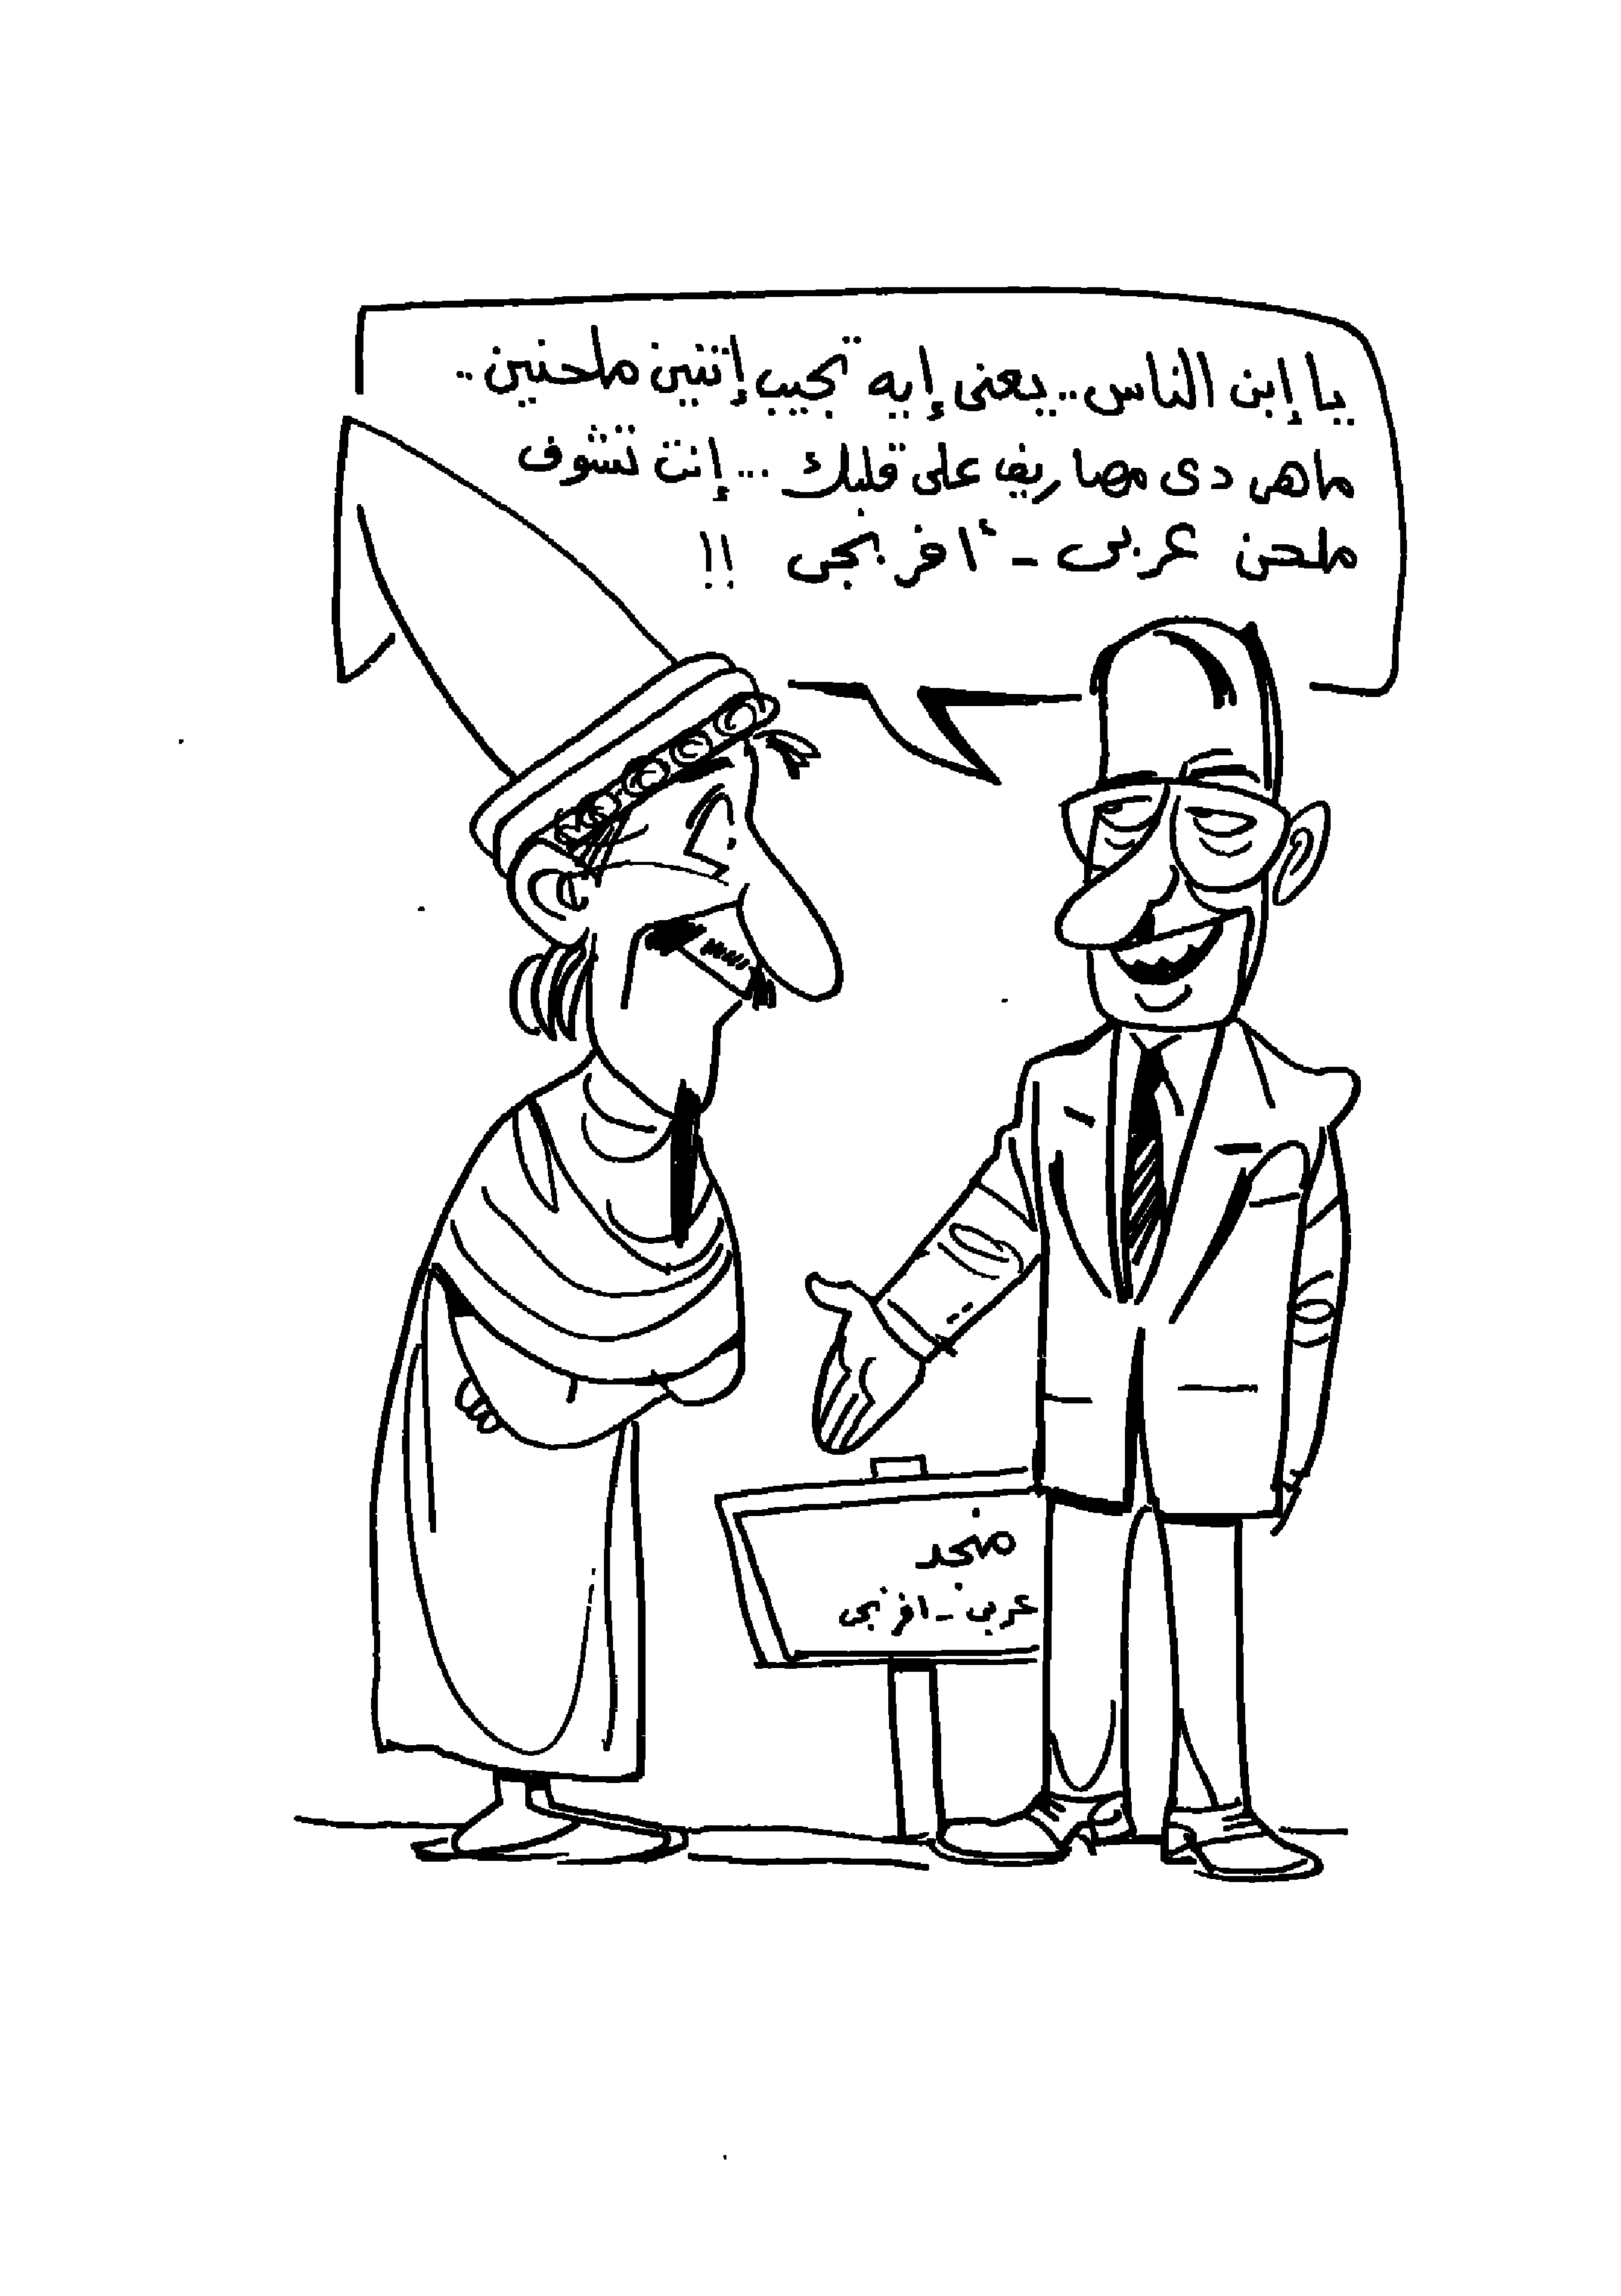 يا إبن الناس.. يعنى إيه تجيب إتنين ملحنين..
ماهى دى مصاريف على قلبك ... إنت تشوف
ملحن عربى - أفرنجى !!
منجد
عربى - افرنجى